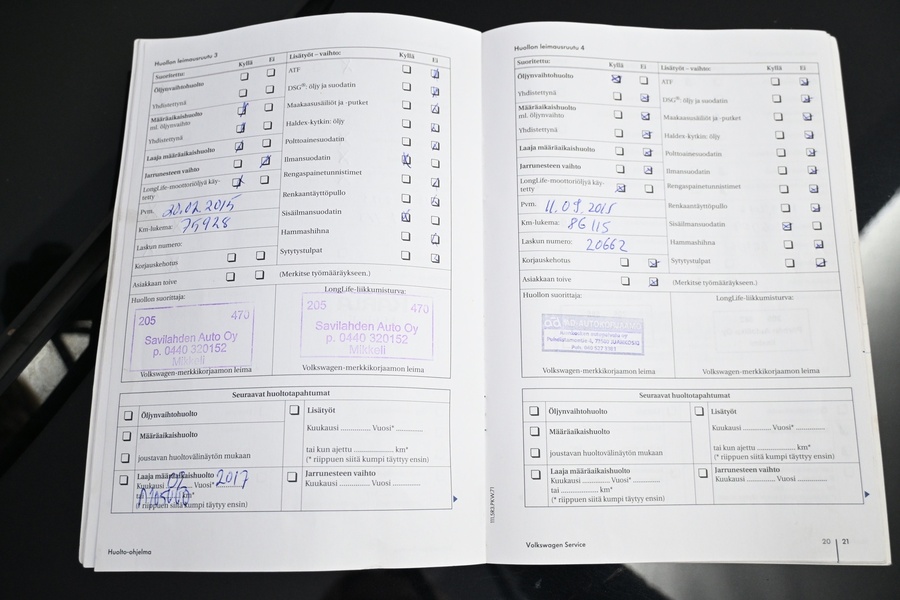 Huollon leimausruutu 3
Suoritettu:
Kyllä
Ei
Öljynvaihtohuolto
Yhdistettynä
Määräaikaishuolto
ml. öljynvaihto
Yhdistettynä
Laaja määräaikaishuolto
Jarrunesteen vaihto
LongLife-moottoriöljyä käy-
tetty
Pvm. 20.02.2015
Km-lukema: 75928
Laskun numero:
Korjauskehotus
Asiakkaan toive
Lisätyöt – vaihto:
Kyllä
Ei
ATF
DSG®: öljy ja suodatin
Maakaasusäiliöt ja -putket
Haldex-kytkin: öljy
Polttoainesuodatin
Ilmansuodatin
Rengaspainetunnistimet
Renkaantäyttöpullo
Sisäilmansuodatin
Hammashihna
Sytytystulpat
(Merkitse työmääräykseen.)
Huollon suorittaja:
LongLife-liikkumisturva:
205 470
Savilahden Auto Oy
p. 0440 320152
Mikkeli
205 470
Savilahden Auto Oy
p. 0440 320152
Mikkeli
Volkswagen-merkkikorjaamon leima
Volkswagen-merkkikorjaamon leima
Seuraavat huoltotapahtumat
Öljynvaihtohuolto
Määräaikaishuolto
joustavan huoltovälinäytön mukaan
Laaja määräaikaishuolto
Kuukausi Vuosi* 2017
tai km*
(* riippuen siitä kumpi täyttyy ensin)
Lisätyöt
Kuukausi .............. Vuosi* ............
tai kun ajettu .............. km*
(* riippuen siitä kumpi täyttyy ensin)
Jarrunesteen vaihto
Kuukausi .............. Vuosi ............
Huolto-ohjelma
Huollon leimausruutu 4
Suoritettu:
Kyllä
Ei
Öljynvaihtohuolto
Yhdistettynä
Määräaikaishuolto
ml. öljynvaihto
Yhdistettynä
Laaja määräaikaishuolto
Jarrunesteen vaihto
LongLife-moottoriöljyä käy-
tetty
Pvm. 11.09.2015
Km-lukema: 86115
Laskun numero: 20662
Korjauskehotus
Asiakkaan toive
Lisätyöt – vaihto:
Kyllä
Ei
ATF
DSG®: öljy ja suodatin
Maakaasusäiliöt ja -putket
Haldex-kytkin: öljy
Polttoainesuodatin
Ilmansuodatin
Rengaspainetunnistimet
Renkaantäyttöpullo
Sisäilmansuodatin
Hammashihna
Sytytystulpat
(Merkitse työmääräykseen.)
Huollon suorittaja:
LongLife-liikkumisturva:
Volkswagen-merkkikorjaamon leima
Volkswagen-merkkikorjaamon leima
Seuraavat huoltotapahtumat
Öljynvaihtohuolto
Määräaikaishuolto
joustavan huoltovälinäytön mukaan
Laaja määräaikaishuolto
Kuukausi .............. Vuosi* ............
tai .............. km*
(* riippuen siitä kumpi täyttyy ensin)
Lisätyöt
Kuukausi .............. Vuosi* ............
tai kun ajettu .............. km*
(* riippuen siitä kumpi täyttyy ensin)
Jarrunesteen vaihto
Kuukausi .............. Vuosi ............
Volkswagen Service
20 21